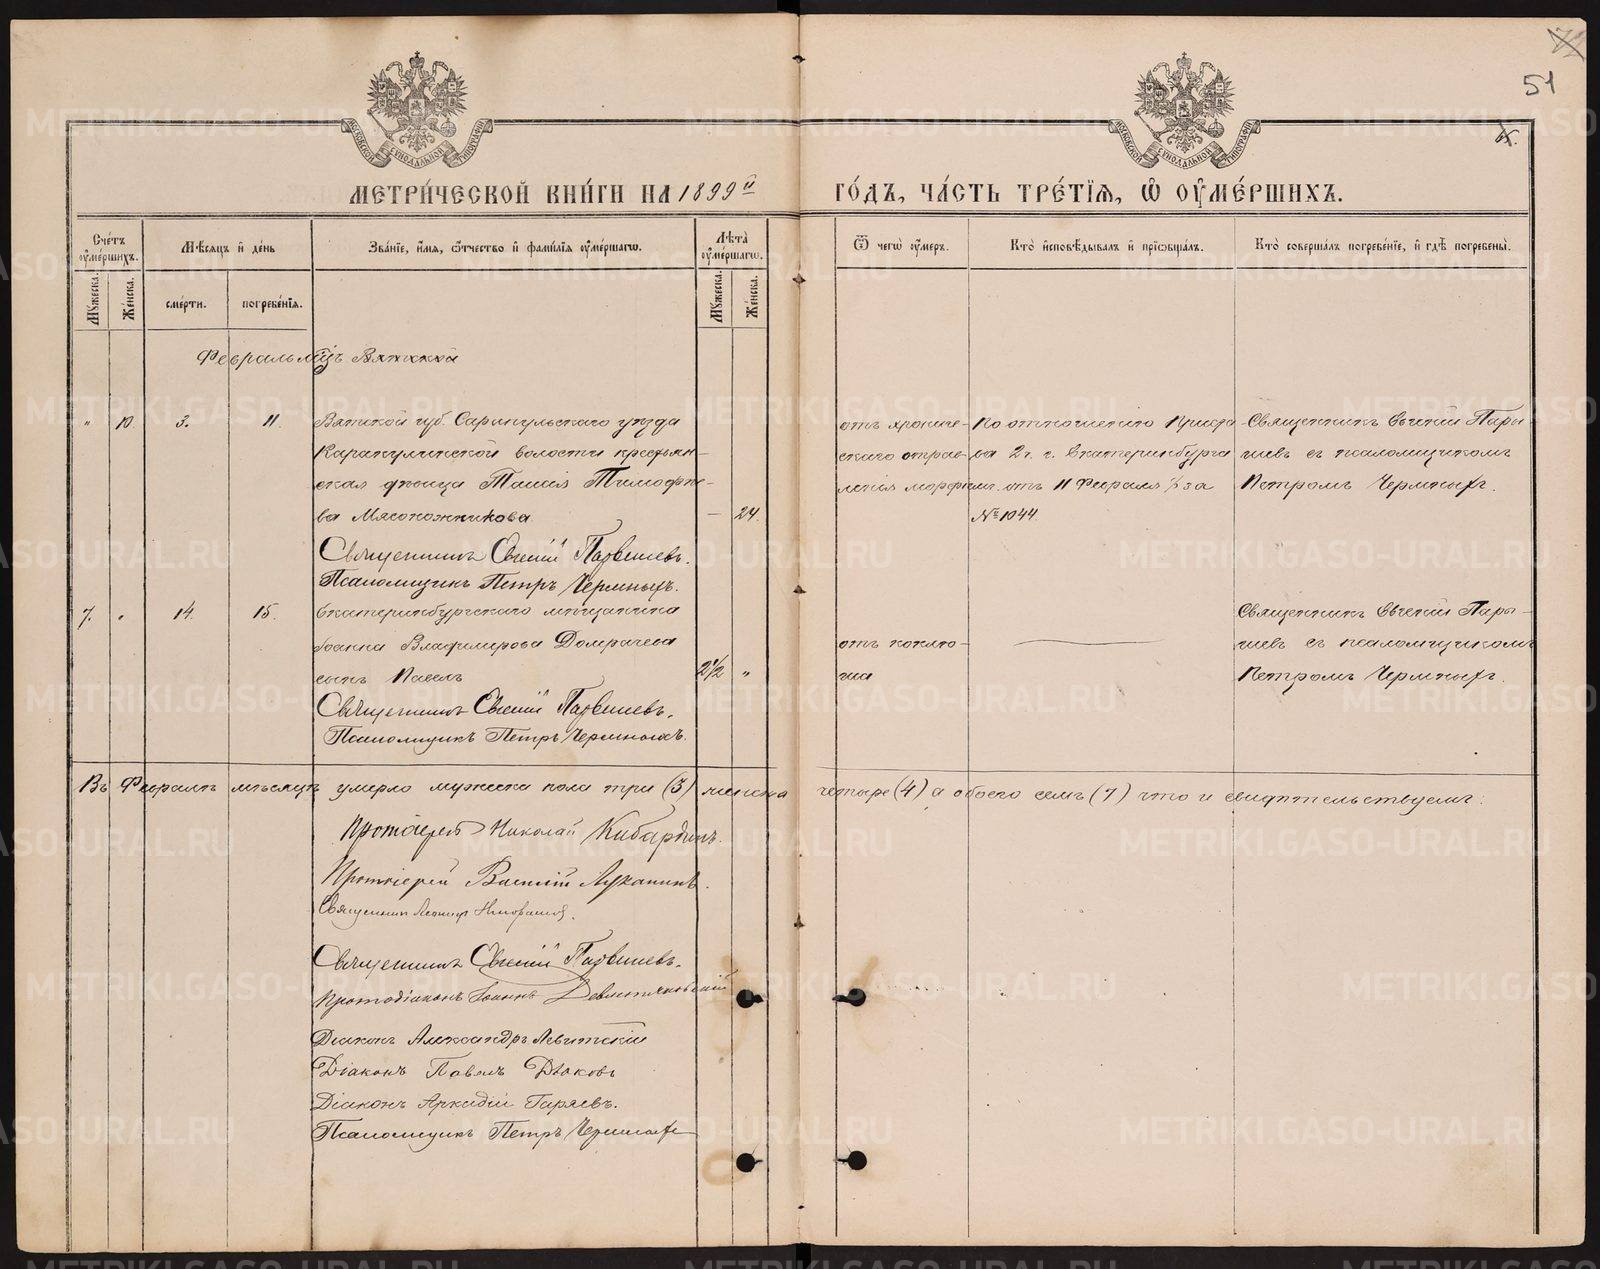 51
МОСКОВСКОЙ СѴНОДАЛЬНОЙ ТИПОГРАФІИ
МОСКОВСКОЙ СѴНОДАЛЬНОЙ ТИПОГРАФІИ
МЕТРИ́ЧЕСКОЙ КНИ́ГИ НА 1899й ГО́ДЪ, ЧА́СТЬ ТРЕ́ТІѦ, Ѡ҆ ОУ҆МЕ́РШИХЪ.
Сче́тъ оу҆ме́ршихъ.
Мꙋ́жеска.
Же́нска.
Мѣ́сѧцъ и҆ де́нь
сме́рти.
погребе́нїѧ.
Зва́нїе, и҆́мѧ, ѻ҆́тчество и҆ фамі́лїѧ оу҆ме́ршагѡ.
Лѣ́та оу҆ме́ршагѡ.
Мꙋ́жеска.
Же́нска.
Ѿ чегѡ̀ оу҆́меръ.
Кто̀ и҆сповѣ́дывалъ и҆ прїѡбща́лъ.
Кто̀ соверша́лъ погребе́нїе, и҆ гдѣ̀ погребены̀.
Февраль мцъ Вятской
" 10 3. 11. Вятской губ. Сарапульскаго уѣзда
Каракулинской волости крестьян-
ская дѣвица Таисія Тимофѣе-
ва Мясокожникова — 24.
отъ хрониче-
скаго отрав-
ленія морфіемъ.
По отношенію Приста
ва 2 ч. г. Екатеринбурга
отъ 11 Февраля за
№ 1044
Священникъ Евгеній Пары-
шевъ съ псаломщикомъ
Петромъ Чермныхъ.
Священникъ Евгеній Парышевъ.
Псаломщикъ Петръ Чермныхъ.
7. " 14. 15. Екатеринбургскаго мѣщанина
Іоанна Владимирова Домрачева
сынъ Павелъ 2½ "
отъ коклю-
ша
Священникъ Евгеній Пары-
шевъ съ псаломщикомъ
Петромъ Чермныхъ.
Священникъ Евгеній Парышевъ.
Псаломщикъ Петръ Чермныхъ.
Въ Февралѣ мѣсяцѣ умерло мужеска пола три (3) женска четыре (4) а обоего семь (7) что и свидѣтельствуемъ:
Протоіерей Николай Кибардинъ.
Протоіерей Василій Луканинъ.
Священникъ
Священникъ Евгеній Парышевъ.
Протодіаконъ Іоаннъ
Діаконъ Александръ Левитскій
Діаконъ Павелъ Дьяковъ
Діаконъ Аркадій Гаряевъ.
Псаломщикъ Петръ Чермныхъ
METRIKI.GASO-URAL.RU